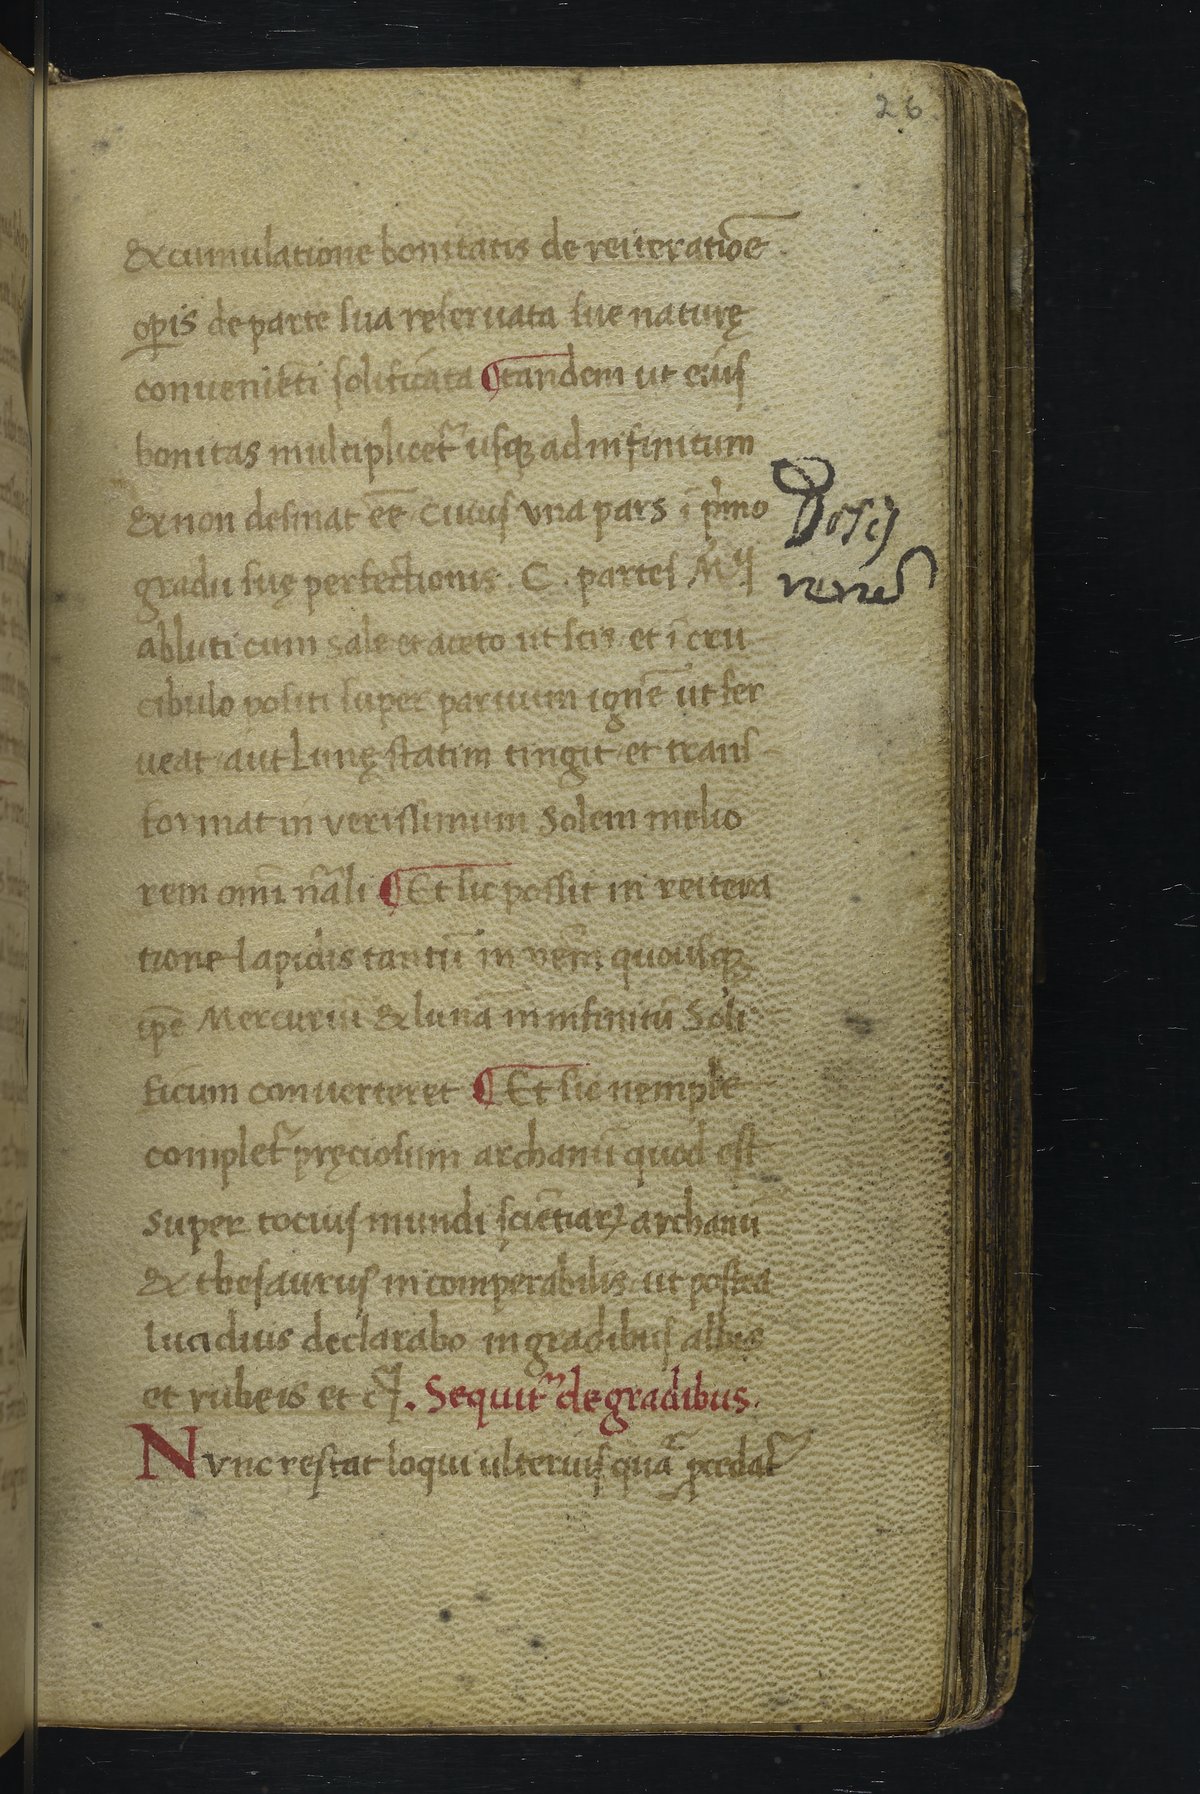 26
& cumulatione bonitatis de reiteratiōe
op̲is de parte sua reseruata sue naturę
conuenie͂ti solificata ¶ tandem ut eius
bonitas multiplicet᷑ usqꜣ ad infinitum
& non desinat ēē. Cuius vna pars ī p̄mo
gradu suę perfectionis .C. partes M̃ij
abluti cum sale et aceto ut scis et ī cru
cibulo positi super paruum ignē ut fer
ueat aut Lunę statim tingit et trans
format in verissimum Solem melio
rem omī nãli ¶ Et sic possit in reitera
tione lapidis tantū in quousqꜣ
ip̄e Mercuriū & lunā in infinitū Soli
ficum conuerteret ¶ Et sic nempe
complet᷑ pręciosum archanū quod est
super tocius mundi sciētiaꝝ archanū
& thesaurus incomperabilis ut postea
lucidius declarabo in gradibus albis
et rubeis et c̃. Sequit᷑ de gradibus.
Nvnc restat loqui ulterius quā p̄cedat᷑
Dosis